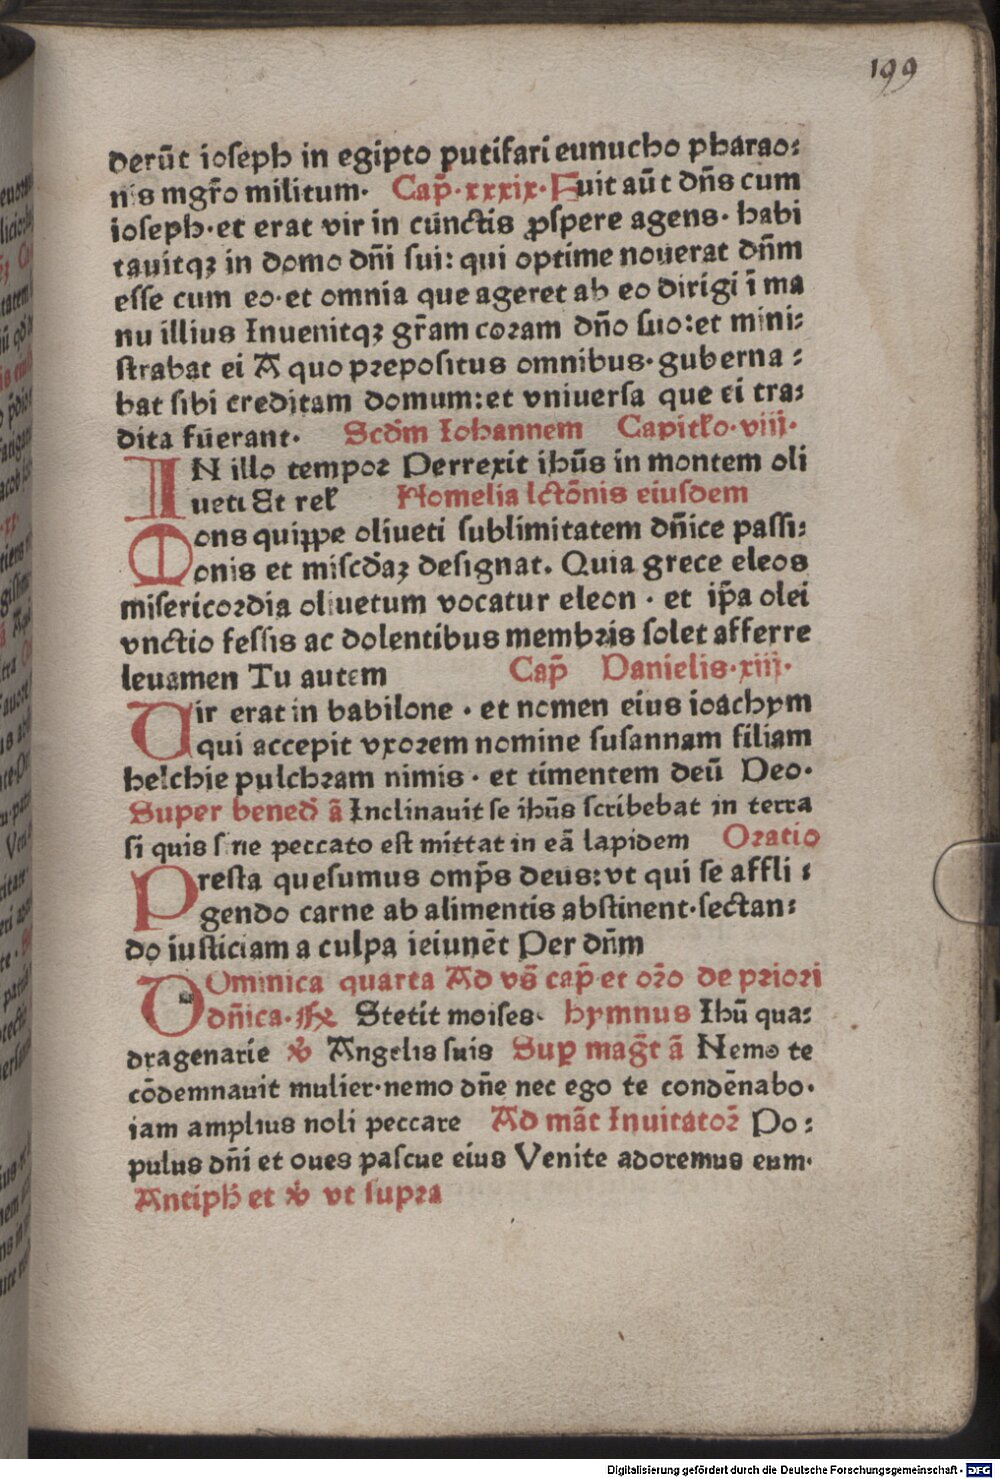 199
derūt ioseph in egipto putifari eunucho pharao:
nis mgr̄o militum. Cap̄.xxxix. Fuit aūt dn̄s cum
ioseph.et erat vir in cunctis ꝓspere agens. habi
tauitqꝫ in domo dn̄i sui: qui optime nouerat dn̄m
esse cum eo.et omnia que ageret ab eo dirigi ī ma
nu illius Inuenitqꝫ gr̄am coram dn̄o suo:et mini:
strabat ei A quo prepositus omnibus.guberna:
bat sibi creditam domum:et vniuersa que ei tra:
dita fuerant. Scd̄m Iohannem Capitło.viij.
IN illo tempor Perrexit ihūs in montem oli
ueti Et reł Homelia lctōnis eiusdem
Mons quippe oliueti sublimitatem dn̄ice passi:
onis et miscd̄aꝫ designat. Quia grece eleos
misericordia oliuetum vocatur eleon . et ip̄a olei
vnctio fessis ac dolentibus membris solet afferre
leuamen Tu autem Cap̄ Danielis.xiij.
Uir erat in babilone . et nomen eius ioachym
qui accepit vxorem nomine susannam filiam
helchie pulchram nimis . et timentem deū Deo.
Super bened̄ ā Inclinauit se ihūs scribebat in terra
si quis sine peccato est mittat in eā lapidem Oratio
Presta quesumus omp̄s deus:vt qui se affli:
gendo carne ab alimentis abstinent.sectan:
do iusticiam a culpa ieiunēt Per dn̄m
DOminica quarta Ad vs̄ cap̄ et or̄o de priori
dn̄ica. Stetit moises. hymnus Ihū qua:
dragenarie ℣ Angelis suis Sup maḡt ā Nemo te
cōdemnauit mulier.nemo dn̄e nec ego te condēnabo.
iam amplius noli peccare Ad māt Inuitator̄ Po:
pulus dn̄i et oues pascue eius Venite adoremus eum.
Antiph̄ et ℣ vt supra
Digitalisierung gefördert durch die Deutsche Forschungsgemeinschaft - DFG